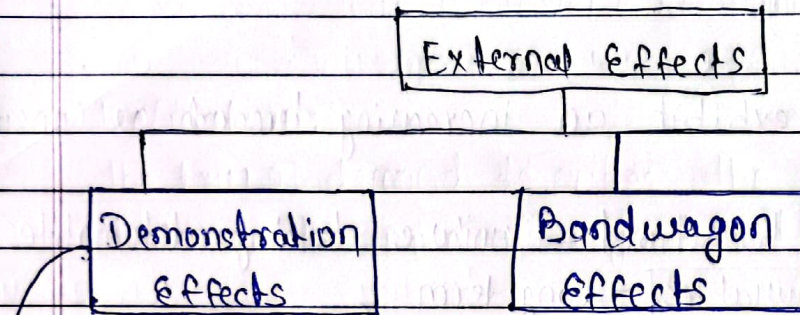 External Effects
Demonstration
Effects
Bandwagon
Effects